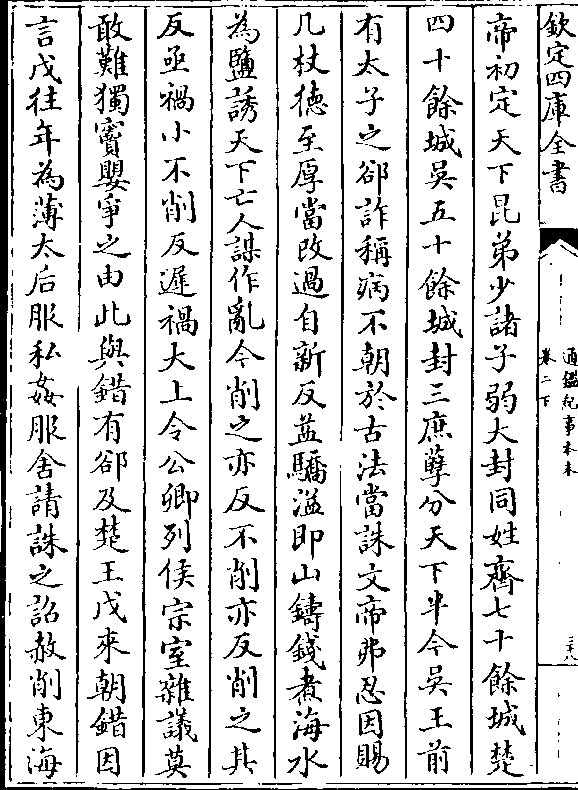 欽定四庫全書
通鑑紀事本末
卷二下
三十八
帝初定天下昆弟少諸子弱大封同姓齊七十餘城楚
四十餘城吳五十餘城封三庶孽分天下半今吳王前
有太子之郤詐稱病不朝於古法當誅文帝弗忍因賜
几杖徳至厚當改過自新反益驕溢即山鑄錢煮海水
為鹽誘天下亡人謀作亂今削之亦反不削亦反削之其
反亟禍小不削反遲禍大上令公卿列侯宗室雜議莫
敢難獨竇嬰爭之由此與錯有郤及楚王戊來朝錯因
言戊往年為薄太后服私姦服舍請誅之詔赦削東海